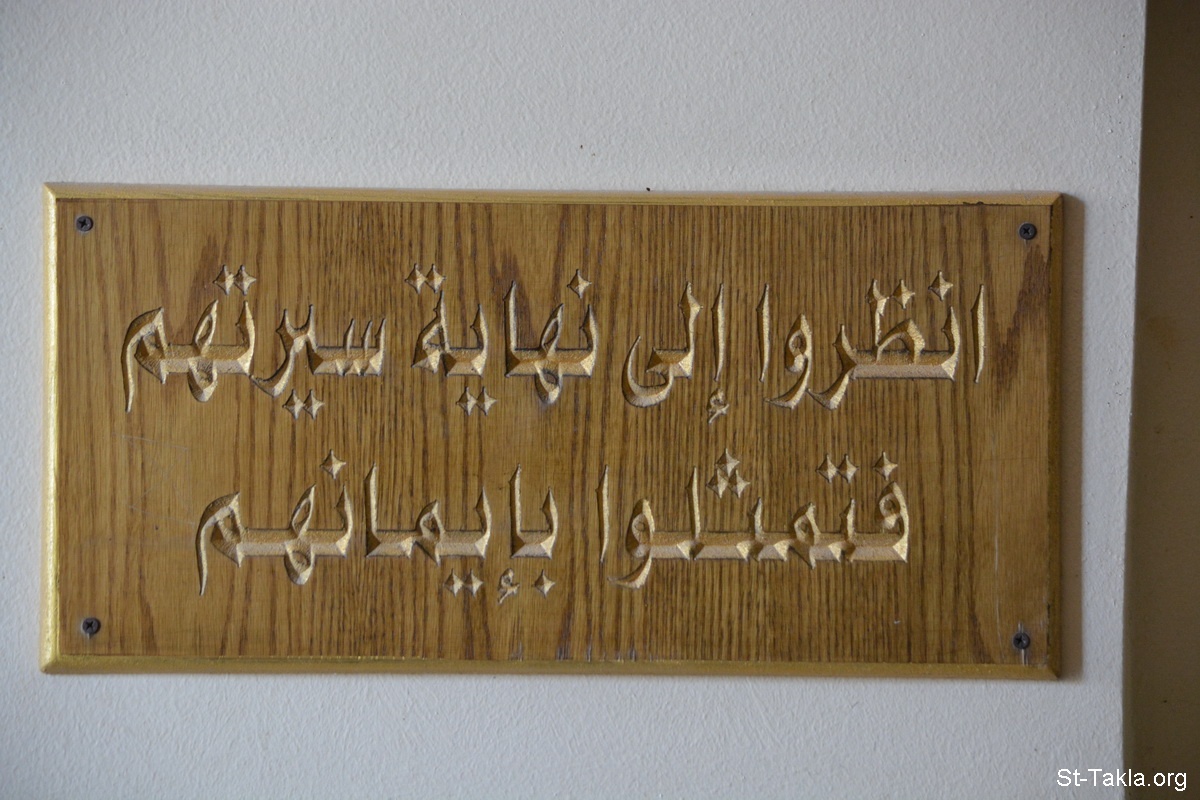 انظروا إلى نهاية سيرتهم
فتمثلوا بإيمانهم
St-Takla.org